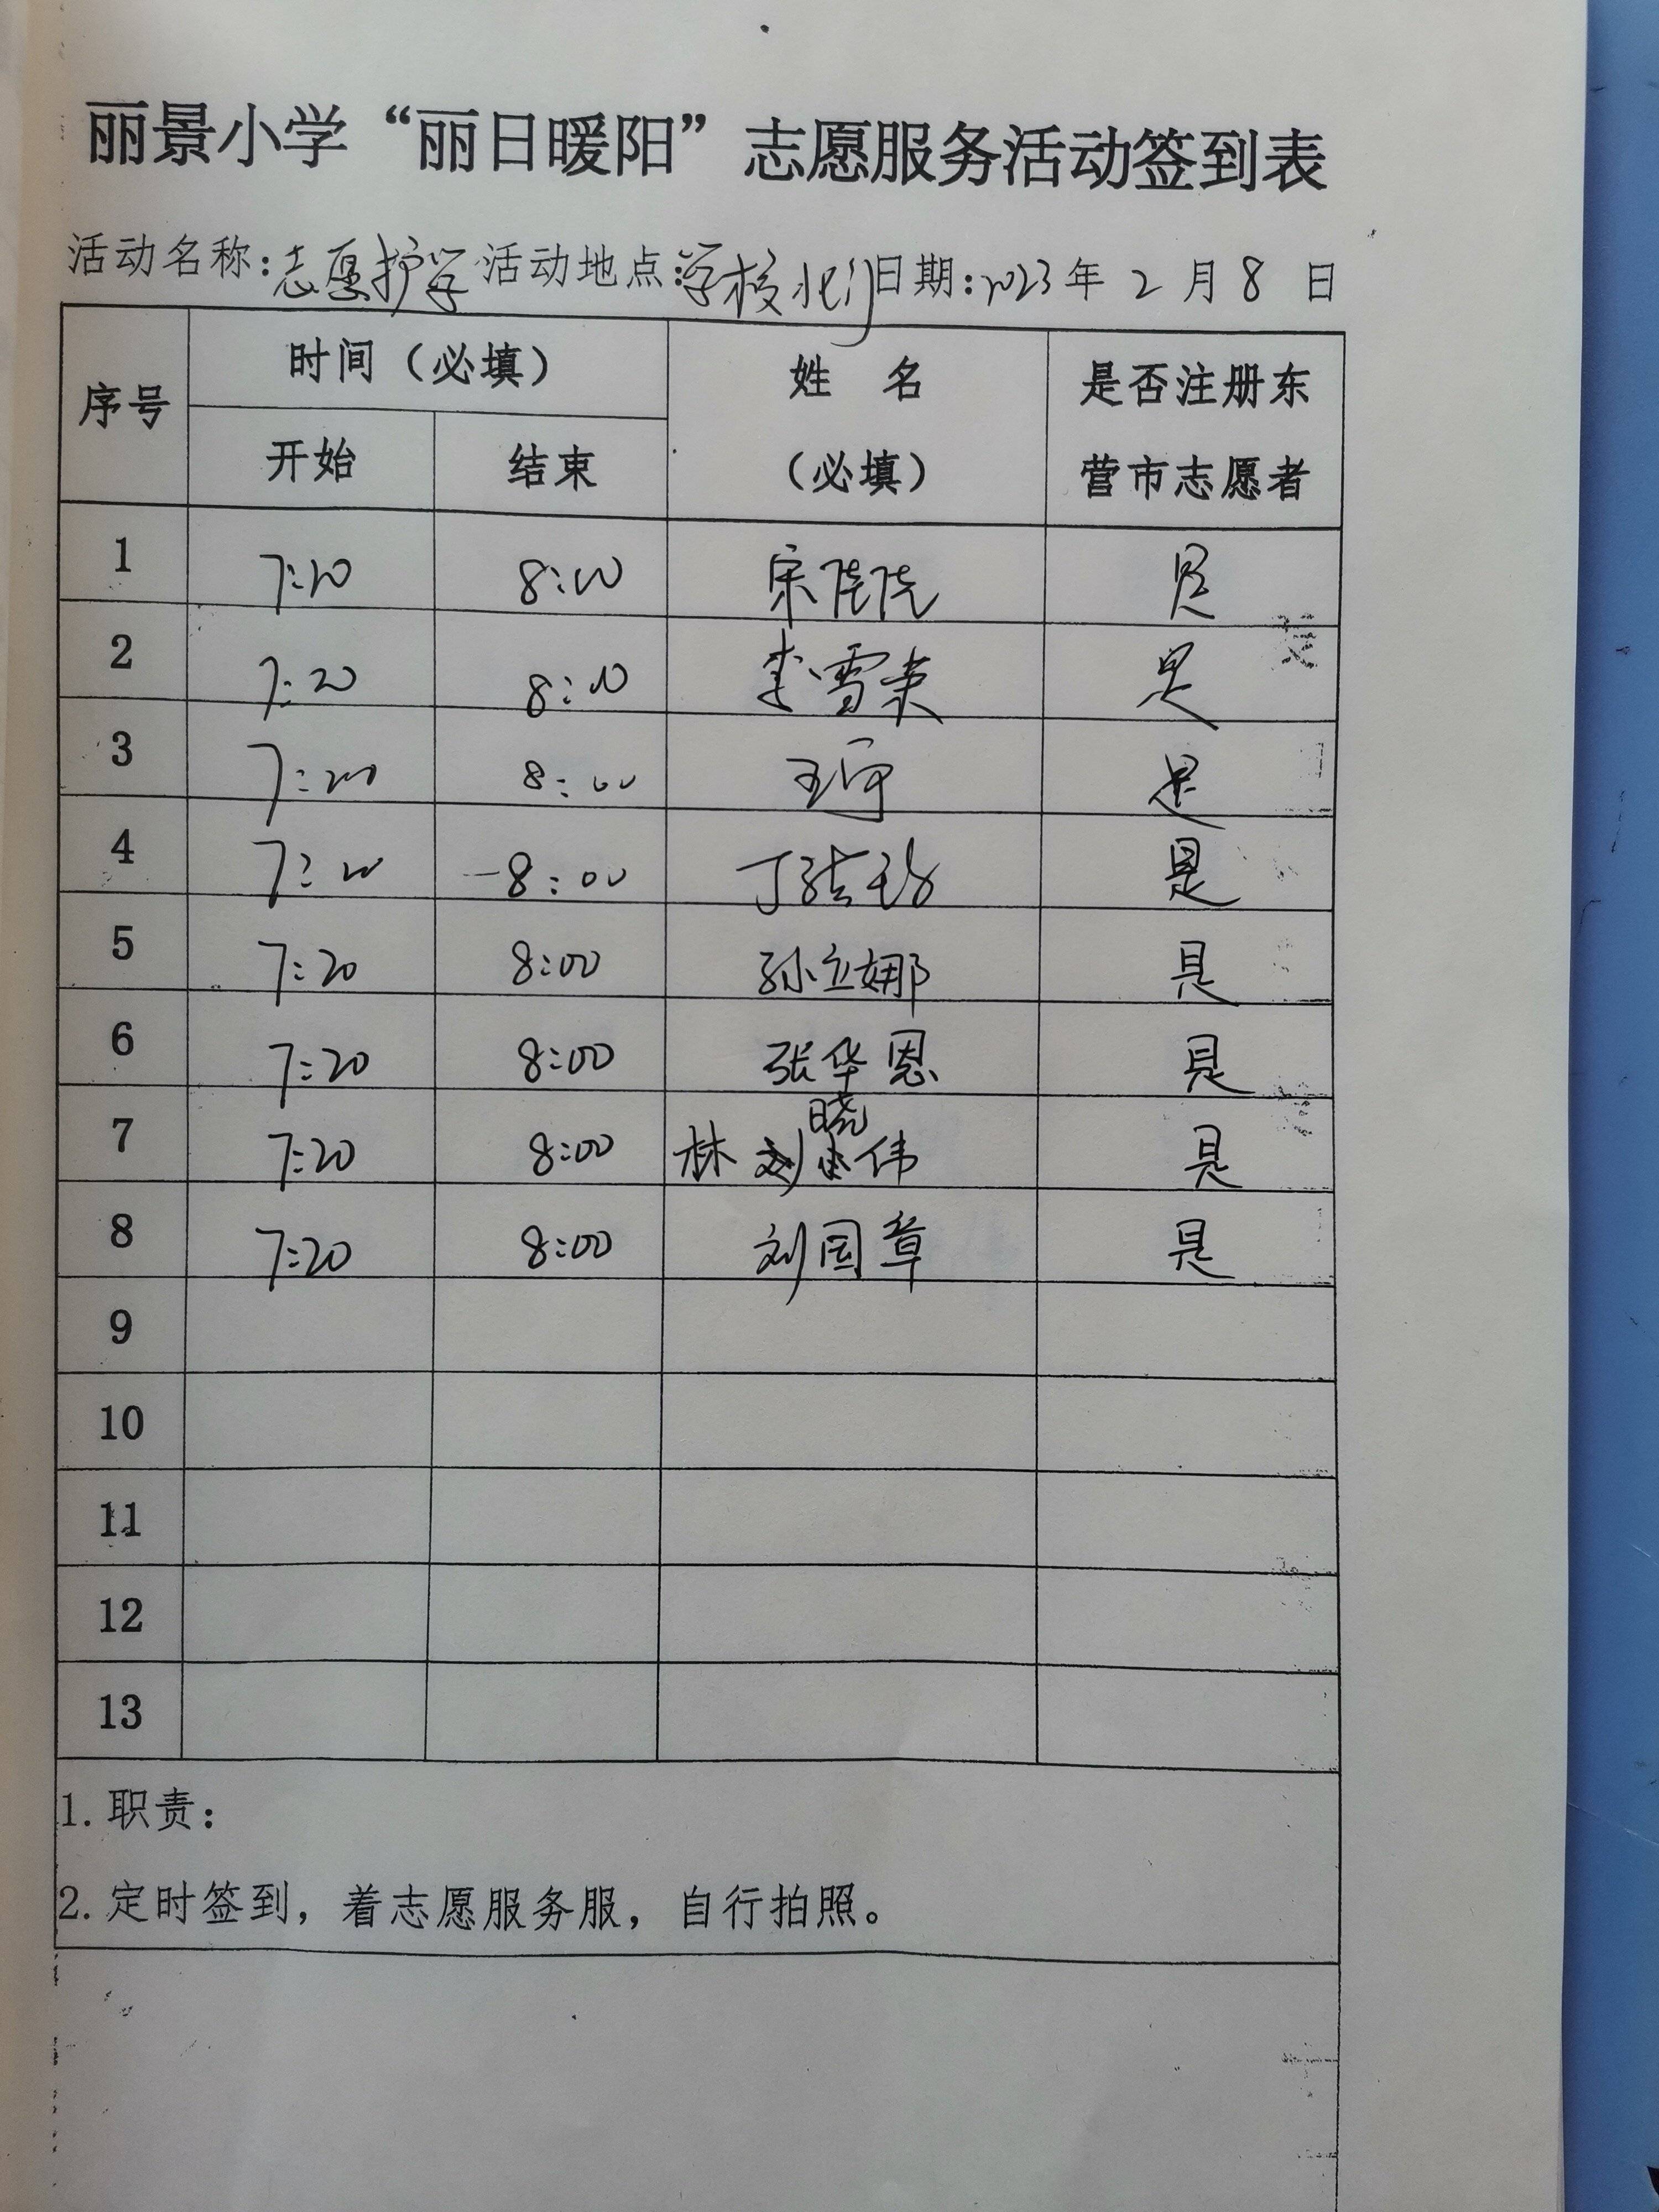 丽景小学“丽日暖阳”志愿服务活动签到表
活动名称:志愿护学 活动地点:学校北门 日期:2023年2月8日
序号 时间（必填） 姓名（必填） 是否注册东营市志愿者
开始 结束
1 7:20 8:00 宋 是
2 7:20 8:00 李雪荣 是
3 7:20 8:00 王 是
4 7:20 8:00 丁 是
5 7:20 8:00 孙立娜 是
6 7:20 8:00 张华恩 是
7 7:20 8:00 林晓伟 是
8 7:20 8:00 刘国章 是
9
10
11
12
13
1.职责：
2.定时签到，着志愿服务服，自行拍照。